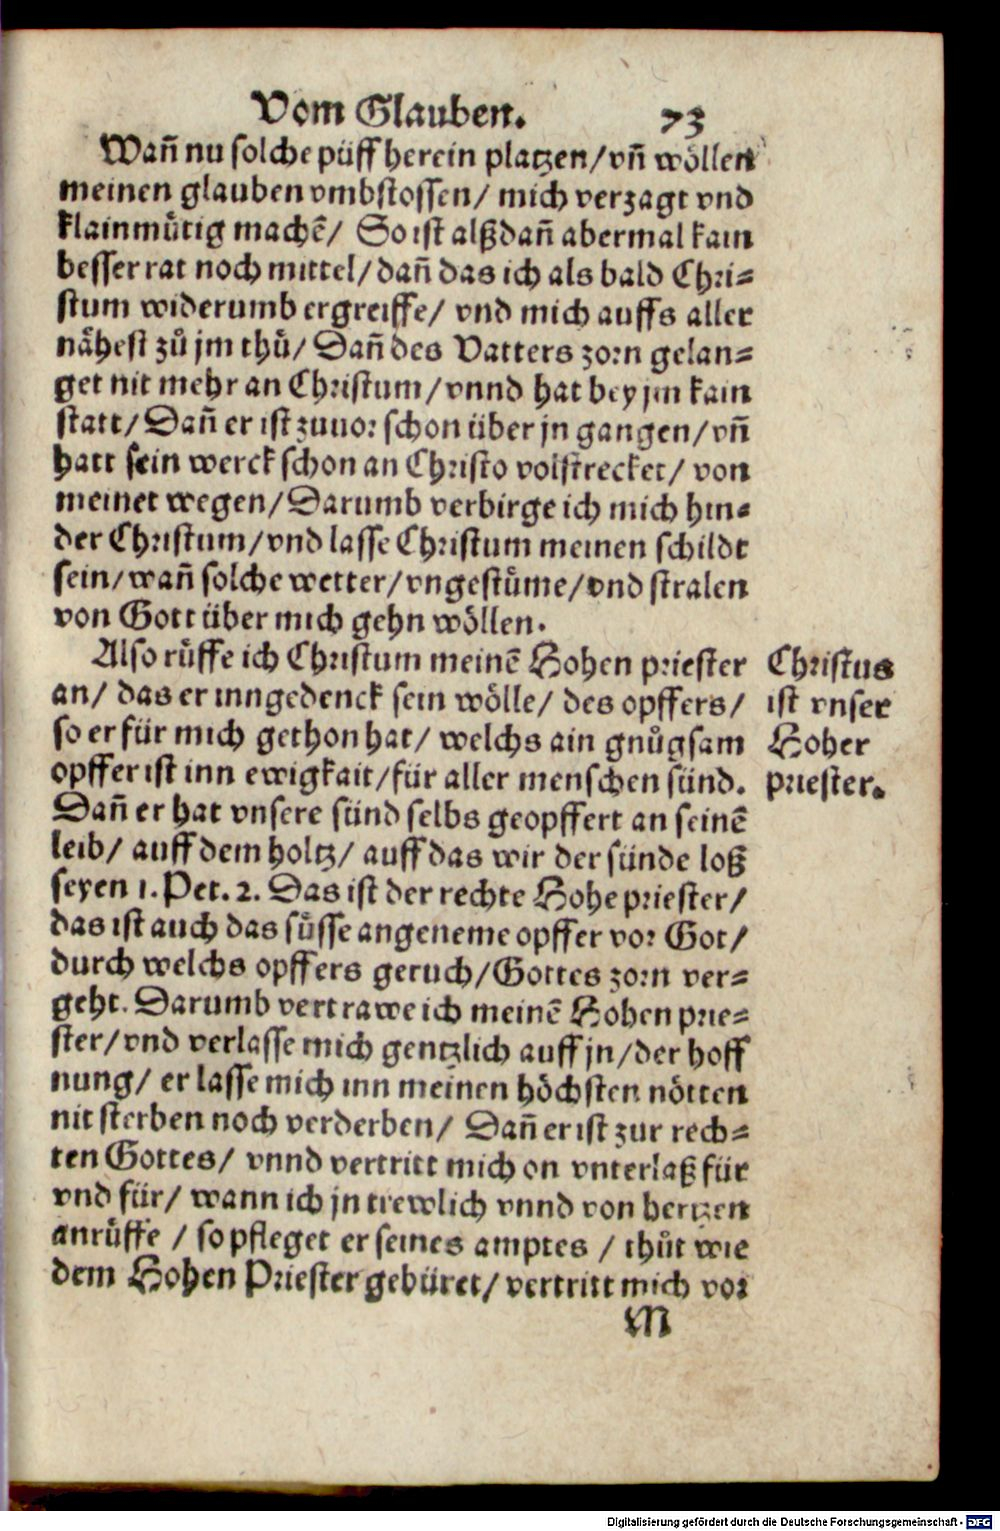 Vom Glauben. 73
Wañ nu solche püff herein platzen/ vñ wöllen
meinen glauben vmbstossen/ mich verzagt vnd
klainmuͤtig machẽ/ So ist alßdañ abermal kain
besser rat noch mittel/ dañ das ich als bald Chri-
stum widerumb ergreiffe/ vnd mich auffs aller
nähest zuͦ jm thuͤ/ Dañ des Vatters zorn gelan-
get nit mehr an Christum/ vnnd hat bey jm kain
statt/ Dañ er ist zuuor schon über jn gangen/ vñ
hatt sein werck schon an Christo volstrecket/ von
meinet wegen/ Darumb verbirge ich mich hin-
der Christum/ vnd lasse Christum meinen schildt
sein/ wañ solche wetter/ vngestuͤme/ vnd stralen
von Gott über mich gehn wöllen.
Also ruͤffe ich Christum meinẽ Hohen priester
an/ das er inngedenck sein wölle/ des opffers/
so er für mich gethon hat/ welchs ain gnuͦgsam
opffer ist inn ewigkait/ für aller menschen sünd.
Dañ er hat vnsere sünd selbs geopffert an seinẽ
leib/ auff dem holtz/ auff das wir der sünde loß
seyen 1. Pet. 2. Das ist der rechte Hohe priester/
das ist auch das suͤsse angeneme opffer vor Got/
durch welchs opffers geruch/ Gottes zorn ver-
geht. Darumb vertrawe ich meinẽ Hohen prie-
ster/ vnd verlasse mich gentzlich auff jn/ der hoff
nung/ er lasse mich inn meinen höchsten nötten
nit sterben noch verderben/ Dañ er ist zur rech-
ten Gottes/ vnnd vertritt mich on vnterlaß für
vnd für/ wann ich jn trewlich vnnd von hertzen
anruͤffe / so pfleget er seines amptes / thuͦt wie
dem Hohen Priester gebüret/ vertritt mich vor
M
Christus
ist vnser
Hoher
priester.
Digitalisierung gefördert durch die Deutsche Forschungsgemeinschaft - DFG